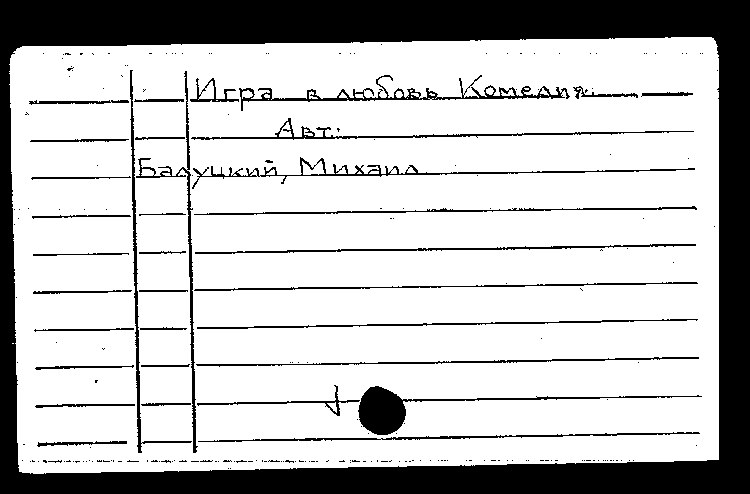 Игра в любовь Комедия.
Авт.:
Балуцкий, Михаил